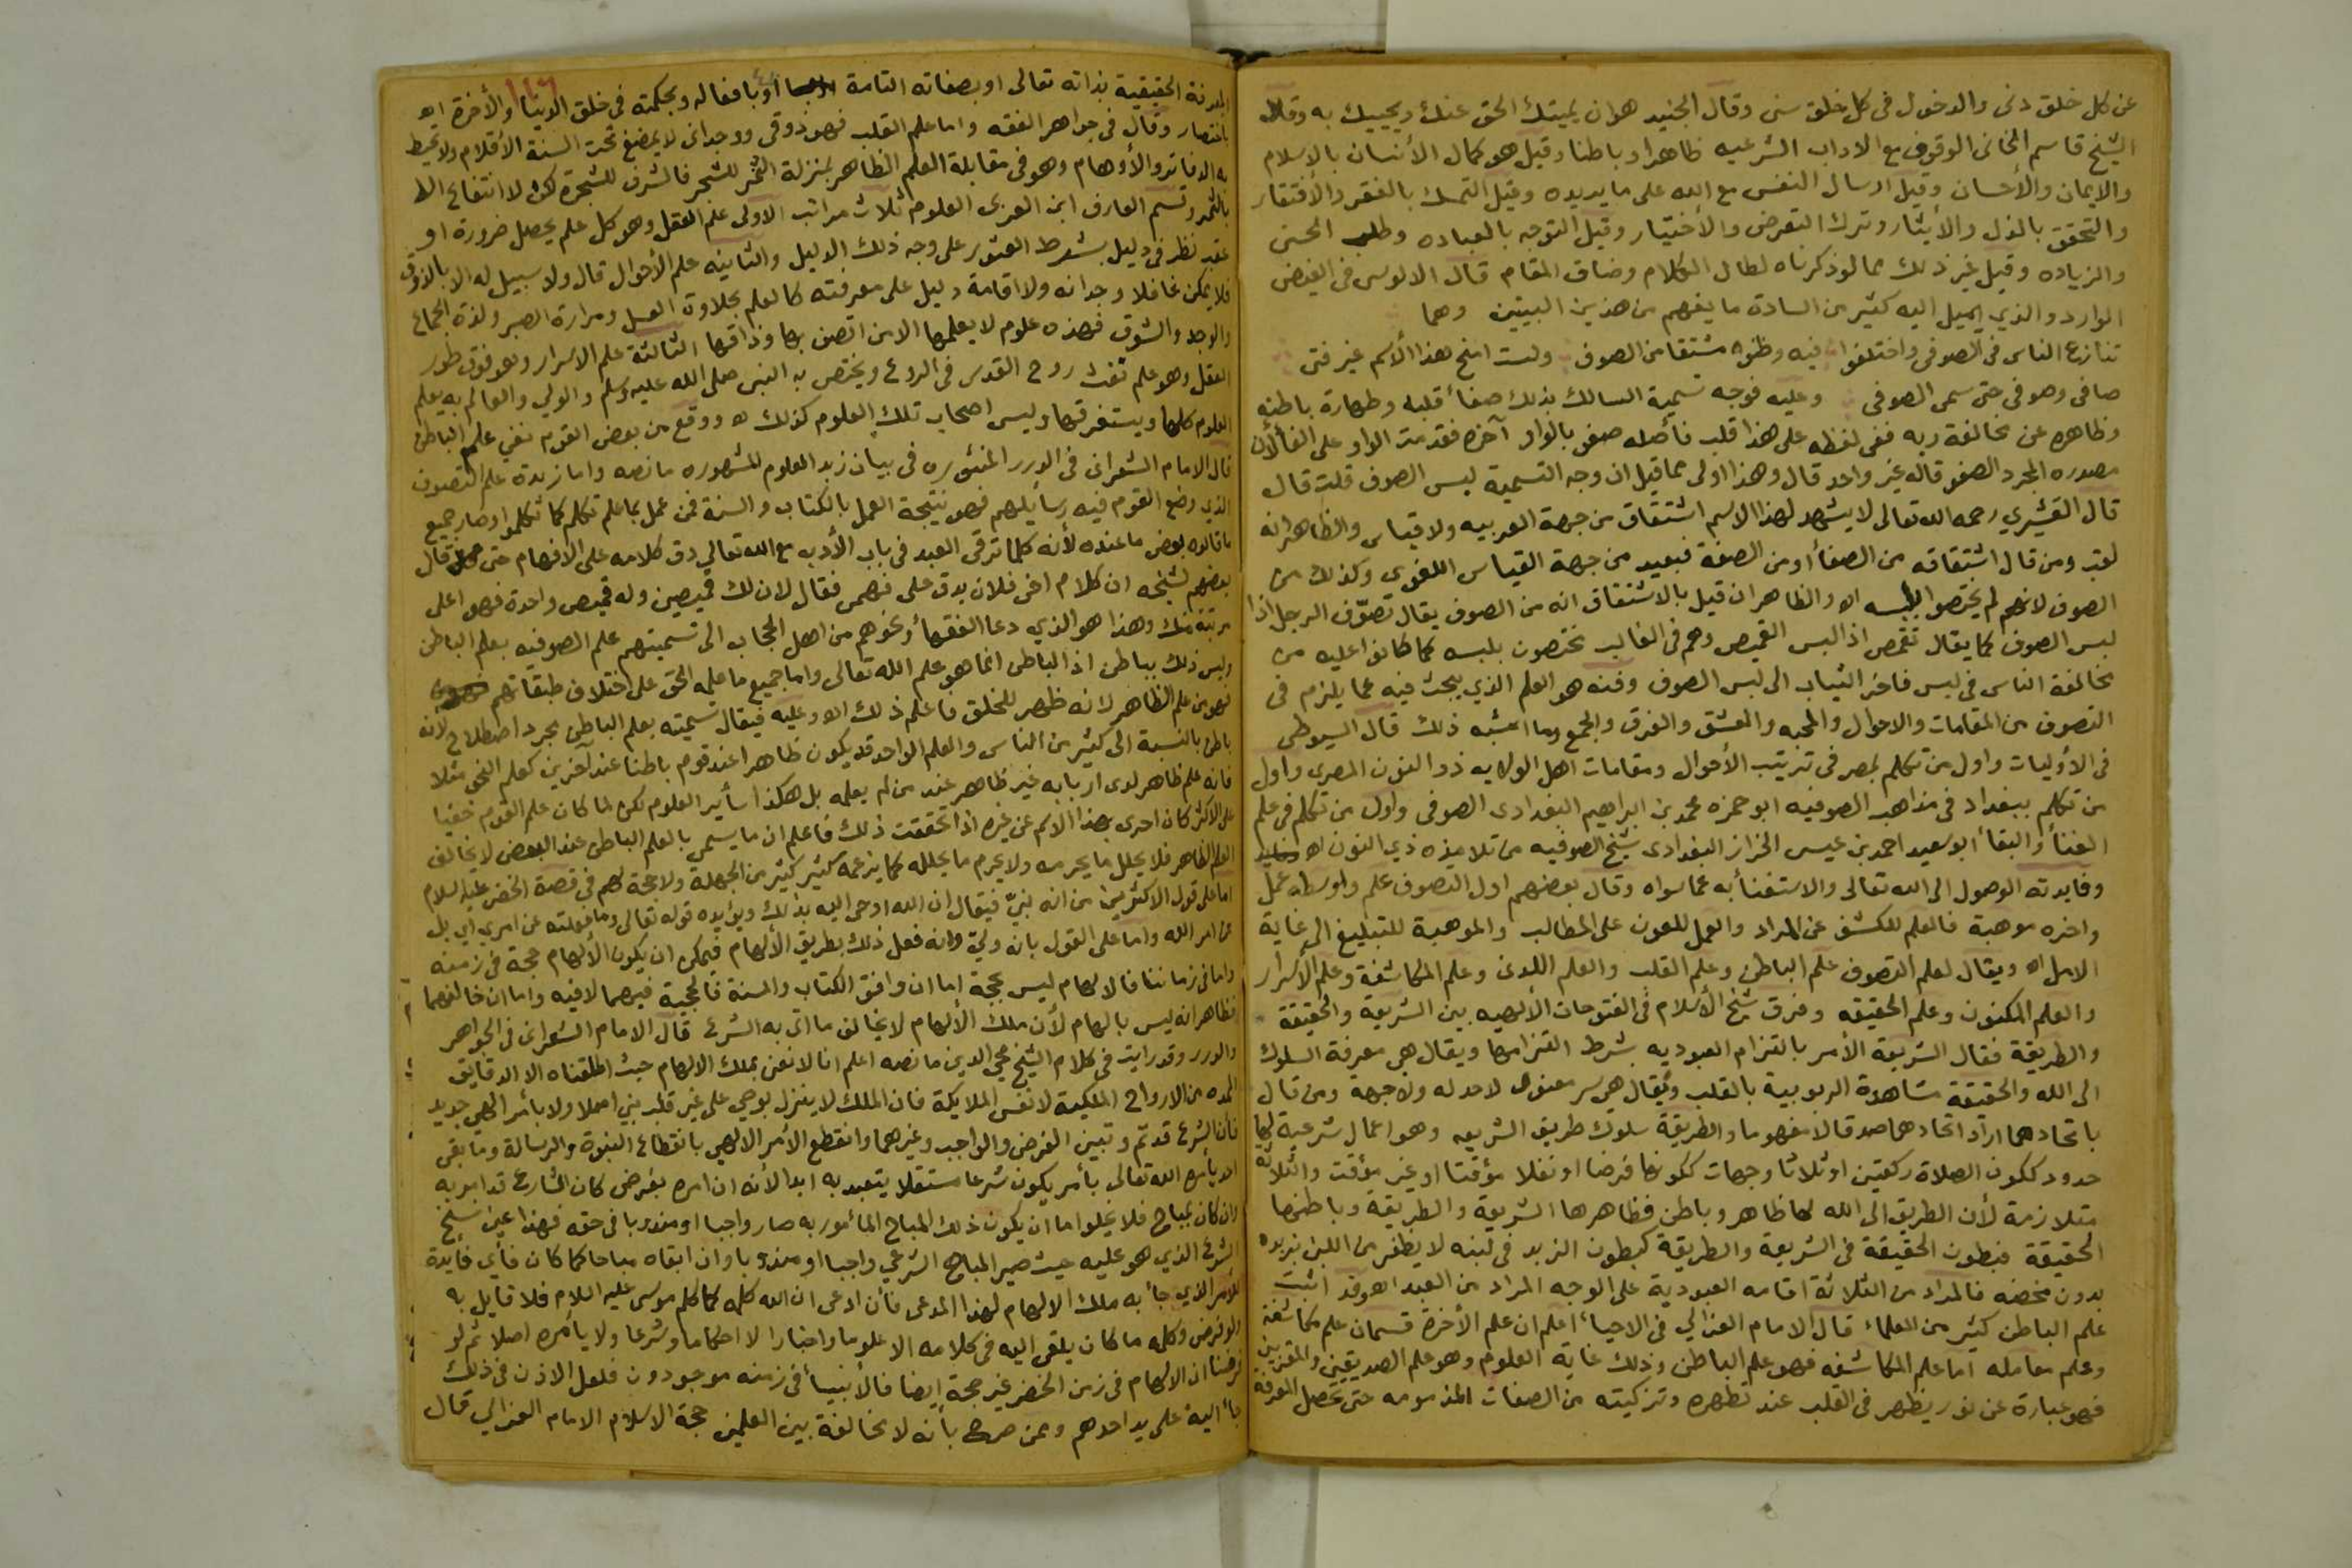 عن كل خلق دنى والدخول فى كل خلق سنى وقال الجنيد هو ان يميتك الحق عنك ويحييك به وقال
الشيخ قاسم الخانى الوقوف مع الاداب الشرعيه ظاهرا وباطنا وقيل هو كمال الأنسان بالاسلام
والايمان والأحسان وقيل ارسال النفس مع الله على ما يريده وقيل التمسك بالفقر والأفتقار
والتحقق بالبذل والأيثار وترك التعرض والأختيار وقيل التوجه بالعباده وطلب الحسنى
والزياده وقيل غير ذلك مما لو ذكرناه لطال الكلام وضاق المقام قال الالوسى فى الفيض
الوارد والذي يميل اليه كثير من السادة ما يفهم من هذين البيتين وهما
تنازع الناس فى الصوفى واختلفوا فيه وظنوه مشتقا من الصوف ولست امنح هذا الأسم غير فتى
صافى وصوفى حتى سمى الصوفى وعليه فوجه تسمية السالك بذلك صفأ قلبه وطهارة باطنه
وظاهره عن مخالفة ربه ففى لفظه على هذا قلب فأصله صفو بالواو آخره فقدمت الواو على الفا لأن
مصدره المجرد الصفو قاله غير واحد قال وهذا اولى مما قيل ان وجه التسمية لبس الصوف قلت قال
قال القشيري رحمه الله تعالى لا يشهد لهذا الاسم اشتقاق من جهة العربيه ولا قياس والظاهر انه
لقب ومن قال اشتقاقه من الصفأ او من الصفة فبعيد من جهة القياس اللغوى وكذلك من
الصوف لانهم لم يختصوا بلبسه اه والظاهر ان قيل بالاشتقاق انه من الصوف يقال تصوّف الرجل اذا
لبس الصوف كما يقال تقمص اذا لبس القميص وهم فى الغالب مختصون بلبسه كما كانوا عليه من
مخالفة الناس فى لبس فاخر الثياب الى لبس الصوف وفنه هو العلم الذي يبحث فيه عما يلزم فى
التصوف من المقامات والاحوال والمحبه والعشق والفرق والجمع وما اشبه ذلك قال السيوطى
فى الاوليات واول من تكلم بمصر فى ترتيب الأحوال ومقامات اهل الولايه ذو النون المصرى واول
من تكلم ببغداد فى مذاهب الصوفيه ابو حمزه محمد بن ابراهيم البغدادى الصوفى واول من تكلم فى علم
الفنأ والبقأ ابو سعيد احمد بن عيسى الخزاز البغدادى شيخ الصوفيه من تلاميذه ذي النون اه
وفايدته الوصول الى الله تعالى والاستغنأ به عما سواه وقال بعضهم اول التصوف علم واوسطه عمل
واخره موهبة فالعلم للكشف عن المراد والعمل للعون على المطالب والموهبة للتبليغ الى غاية
الامل اه ويقال لعلم التصوف علم الباطن وعلم القلب والعلم اللدنى وعلم المكاشفة وعلم الأسرار
والعلم المكنون وعلم الحقيقه وفرق شيخ الأسلام فى الفتوحات الألهيه بين الشريعة والحقيقة
والطريقة فقال الشريعة الأمر بالتزام العبوديه بشرط التزامها ويقال هى معرفة السلوك
الى الله والحقيقة مشاهدة الربوبية بالقلب ويقال هى سر معنوى لا حد له ولا جهة ومن قال
باتحادهما اراد اتحادهما صدقا لا مفهوما والطريقة سلوك طريق الشريعه وهو اعمال شرعية لها
حدود ككون الصلاة ركعتين او ثلاثا وجهات ككونها فرضا او نفلا مؤقتا او غير مؤقت والثلاثة
متلازمة لأن الطريق الى الله لها ظاهر وباطن فظاهرها الشريعة والطريقة وباطنها
الحقيقة فبطون الحقيقة فى الشريعة والطريقة كبطون الزبد فى لبنه لا يظفر من اللبن بزبده
بدون مخضه فالمراد من الثلاثة اقامه العبودية على الوجه المراد من العبد اه وقد اثبت
علم الباطن كثير من العلماء قال الامام الغزالي فى الاحيأ اعلم ان علم الأخرة قسمان علم مكاشفة
وعلم معامله اما علم المكاشفه فهو علم الباطن وذلك غاية العلوم وهو علم الصديقين والمقربين
فهو عبارة عن نور يظهر فى القلب عند تطهره وتزكيته من الصفات المذمومه حتى تحصل المعرفة
الحقيقية بذاته تعالى او بصفاته التامة او بافعاله وبحكمته فى خلق الدنيا والأخرة اه
باختصار وقال فى جواهر الفقه واما علم القلب فهو ذوقى ووجدانى لا يمضغ تحت السنة الأقلام ولا تحيط
به الدفاتر والأوهام وهو فى مقابلة العلم الظاهر بمنزلة الثمر للشجر فالشرف للشجرة لكن لا انتفاع الا
بالثمر وقسم العارف ابن العربى العلوم ثلاث مراتب الاولى علم العقل وهو كل علم يحصل ضرورة او
عقب نظر فى دليل بشرط العثور على وجه ذلك الدليل والثانيه علم الأحوال قال ولا سبيل له الا بالذوق
فلا يمكن عاقلا وجدانه ولا اقامة دليل على معرفته كالعلم بحلاوة العسل ومرارة الصبر ولذة الجماع
والوجد والشوق فهذه علوم لا يعلمها الا من اتصف بها وذاقها الثالثة علم الاسرار وهو فوق طور
العقل وهو علم نفث روح القدس فى الروع ويختص به النبى صلى الله عليه وسلم والولي والعالم به يعلم
العلوم كلها ويستغرقها وليس اصحاب تلك العلوم كذلك اه ووقع من بعض القوم نفي علم الباطن
قال الامام الشعرانى فى الدرر المنثوره فى بيان زبد العلوم المشهوره ما نصه واما زبدة علم التصوف
الذي وضع القوم فيه رسايلهم فهو نتيجة العمل بالكتاب والسنة فمن عمل بما علم تكلم كما تكلموا وصار جميع
ما قالوه بعض ما عنده لأنه كلما ترقى العبد فى باب الأدب مع الله تعالى دق كلامه على الافهام حتى قال
بعضهم لشيخه ان كلام اخى فلان يدق على فهمى فقال لان لك قميصين وله قميص واحدة فهو اعلى
مرتبة منك وهذا هو الذي دعا الفقهأ ونحوهم من اهل الحجاب الى تسميتهم علم الصوفيه بعلم الباطن
وليس ذلك بباطن اذ الباطن انما هو علم الله تعالى واما جميع ما علمه الخلق على اختلاف طبقاتهم
فهو من علم الظاهر لانه ظهر للخلق فاعلم ذلك اه وعليه فيقال تسميته بعلم الباطن مجرد اصطلاح لانه
باطن بالنسبة الى كثير من الناس والعلم الواحد قد يكون ظاهرا عند قوم باطنا عند آخرين كعلم النحو مثلا
فانه علم ظاهر لدى اربابه غير ظاهر عند من لم يعلمه بل هكذا سأير العلوم لكن لما كان علم القوم خفيا
على الاكثر كان احرى بهذا الاسم عن غيره اذا تحققت ذلك فاعلم ان ما يسمى بالعلم الباطن عند البعض لا يخالف
العلم الظاهر فلا يحلل ما يحرمه ولا يحرم ما يحلله كما يزعمه كثير كثير من الجهلة ولا حجة لهم فى قصة الخضر عليه السلام
اما على قول الاكثرين من انه نبيّ فيقال ان الله اوحى اليه بذلك ويؤيده قوله تعالى وما فعلته عن امري اي بل
عن امر الله واما على القول بانه وليّ وانه فعل ذلك بطريق الألهام فيمكن ان يكون الألهام حجة فى زمنه
واما فى زماننا فالالهام ليس بحجة اما ان وافق الكتاب والسنة فالحجية فيهما لا فيه واما ان خالفهما
فظاهر انه ليس بالهام لأن ملك الألهام لا يخالف ما اتى به الشرع قال الامام الشعرانى فى الجواهر
والدرر وقد رايت فى كلام الشيخ محيي الدين ما نصه اعلم انا لا نعنى بملك الالهام حيث اطلقناه الا الدقايق
الممده من الارواح الملكية لا نفس الملايكة فان الملك لا ينزل بوحي على غير قلب نبي اصلا ولا بأمر الهي جديد
فان الشرع قد تم وتبين الفرض والواجب وغيرهما وانقطع الأمر الالهي بانقطاع النبوة والرسالة وما بقى
احد يأمره الله تعالى بأمر يكون شرعا مستقلا يتعبد به ابدا لأنه ان امره بفرض كان الشارع قد امر به
وان كان بمباح فلا يخلوا اما ان يكون ذلك المباح المأمور به صار واجبا او مندوبا فى حقه فهذا عين نسخ
الشرع الذي هو عليه حيث صير المباح الشرعي واجبا او مندوبا وان ابقاه مباحا كما كان فأي فأيدة
للأمر الذي جأ به ملك الالهام لهذا المدعى فأن ادعى ان الله كلمه كما كلم موسى عليه السلام فلا قايل به
ولو فرض وكلمه ما كان يلقى اليه فى كلامه الا علوما واخبارا لا احكاما وشرعا ولا يأمره اصلا ثم لو
فرضنا ان الالهام فى زمن الخضر غير حجة ايضا فالأنبيأ فى زمنه موجودون فلعل الاذن فى ذلك
جأ اليه على يد احدهم وممن صرح بأنه لا مخالفة بين العلمين حجة الاسلام الامام الغزالي قال